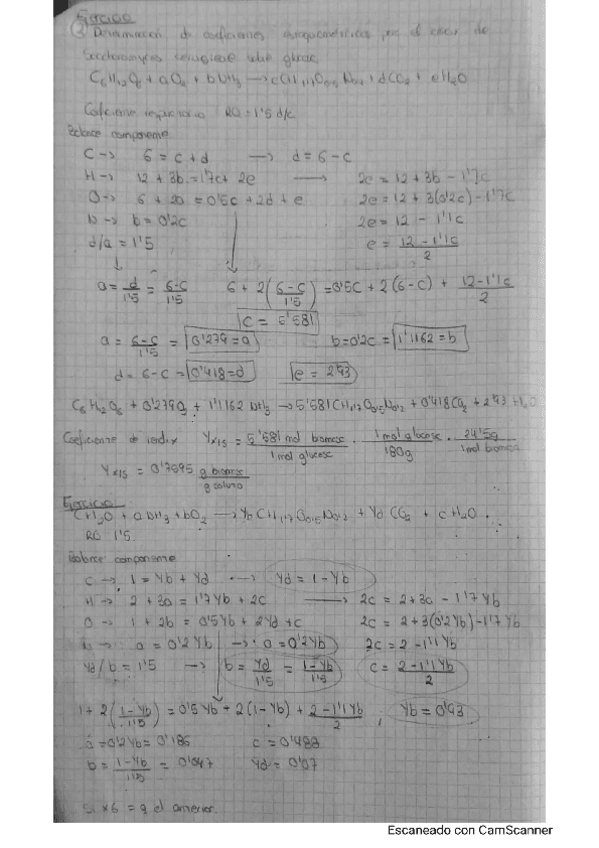 Ejercicio
② Determinación de coeficientes estequiométricos por el de
Saccharomyces cerevisiae sobre glucosa
C₆H₁₂O₆ + aO₂ + bNH₃ → cCH₁,₇O₀,₅N₀,₂ + dCO₂ + eH₂O
Coeficiente respiratorio RQ = 1'5 d/a
Balance componente
C → 6 = c + d → d = 6 - c
H → 12 + 3b = 1'7c + 2e → 2e = 12 + 3b - 1'7c
O → 6 + 2a = 0'5c + 2d + e 2e = 12 + 3(0'2c) - 1'7c
N → b = 0'2c 2e = 12 - 1'1c
d/a = 1'5 e = (12 - 1'1c)/2
a = d/1'5 = (6-c)/1'5 6 + 2((6-c)/1'5) = 0'5c + 2(6-c) + (12-1'1c)/2
c = 5'581
a = (6-c)/1'5 = 0'279 = a b = 0'2c = 1'1162 = b
d = 6-c = 0'418 = d e = 2'93
C₆H₁₂O₆ + 0'279O₂ + 1'1162 NH₃ → 5'581 CH₁,₇O₀,₅N₀,₂ + 0'418CO₂ + 2'93 H₂O
Coeficiente de rendix Yx/s = 5'581 mol biomasa / 1 mol glucosa · 1 mol glucosa / 180g · 24'5g / 1 mol biomasa
Yx/s = 0'7595 g biomasa / g soluto
Ejercicio
CH₂O + aNH₃ + bO₂ → Yb CH₁,₇O₀,₅N₀,₂ + Yd CO₂ + cH₂O.
RQ 1'5.
Balance componente
C → 1 = Yb + Yd → Yd = 1 - Yb
H → 2 + 3a = 1'7Yb + 2c → 2c = 2 + 3a - 1'7Yb
O → 1 + 2b = 0'5Yb + 2Yd + c 2c = 2 + 3(0'2Yb) - 1'7Yb
N → a = 0'2Yb → a = 0'2Yb 2c = 2 - 1'1Yb
Yd/b = 1'5 → b = Yd/1'5 = (1-Yb)/1'5 c = (2 - 1'1Yb)/2
1 + 2((1-Yb)/1'5) = 0'5Yb + 2(1-Yb) + (2-1'1Yb)/2 ; Yb = 0'93
a = 0'2Yb = 0'186 c = 0'488
b = (1-Yb)/1'5 = 0'047 Yd = 0'07
Si x6 = q el anterior.
Escaneado con CamScanner